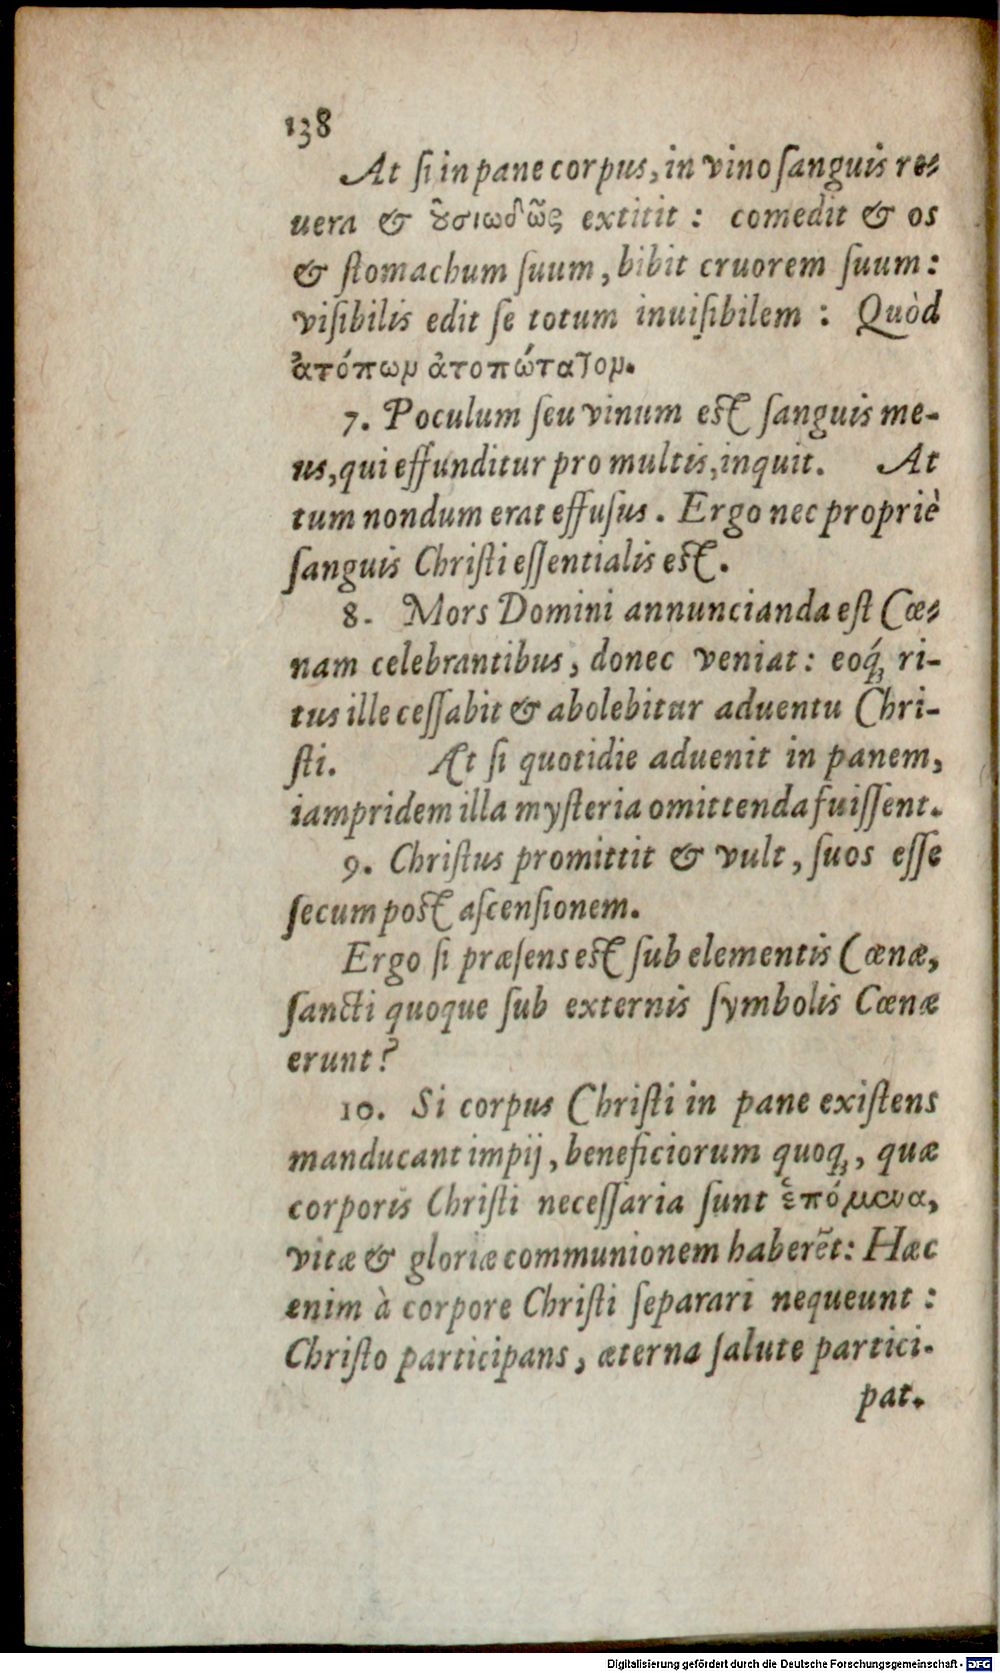 138
At ſi in pane corpus, in vino ſanguis re-
uera & ȣ̓σιωδῶς extitit : comedit & os
& ſtomachum ſuum, bibit cruorem ſuum:
viſibilis edit ſe totum inuiſibilem : Quòd
ἀτόπωμ ἀτοπώτατομ.
7. Poculum ſeu vinum eſt ſanguis me-
us, qui effunditur pro multis, inquit. At
tum nondum erat effuſus. Ergo nec propriè
ſanguis Chriſti eſſentialis eſt.
8. Mors Domini annuncianda eſt Cœ-
nam celebrantibus, donec veniat: eoq́; ri-
tus ille ceſſabit & abolebitur aduentu Chri-
ſti. Æt ſi quotidie aduenit in panem,
iampridem illa myſteria omittenda fuiſſent.
9. Chriſtus promittit & vult, ſuos eſſe
ſecum poſt aſcenſionem.
Ergo ſi præſens eſt ſub elementis Cœnæ,
ſancti quoque ſub externis ſymbolis Cœnæ
erunt?
10. Si corpus Chriſti in pane exiſtens
manducant impij, beneficiorum quoq;, quæ
corporis Chriſti neceſſaria ſunt ἑπόμενα,
vitæ & gloriæ communionem haberēt: Hæc
enim à corpore Chriſti ſeparari nequeunt :
Chriſto participans, æterna ſalute partici-
pat.
Digitalisierung gefördert durch die Deutsche Forschungsgemeinschaft - DFG